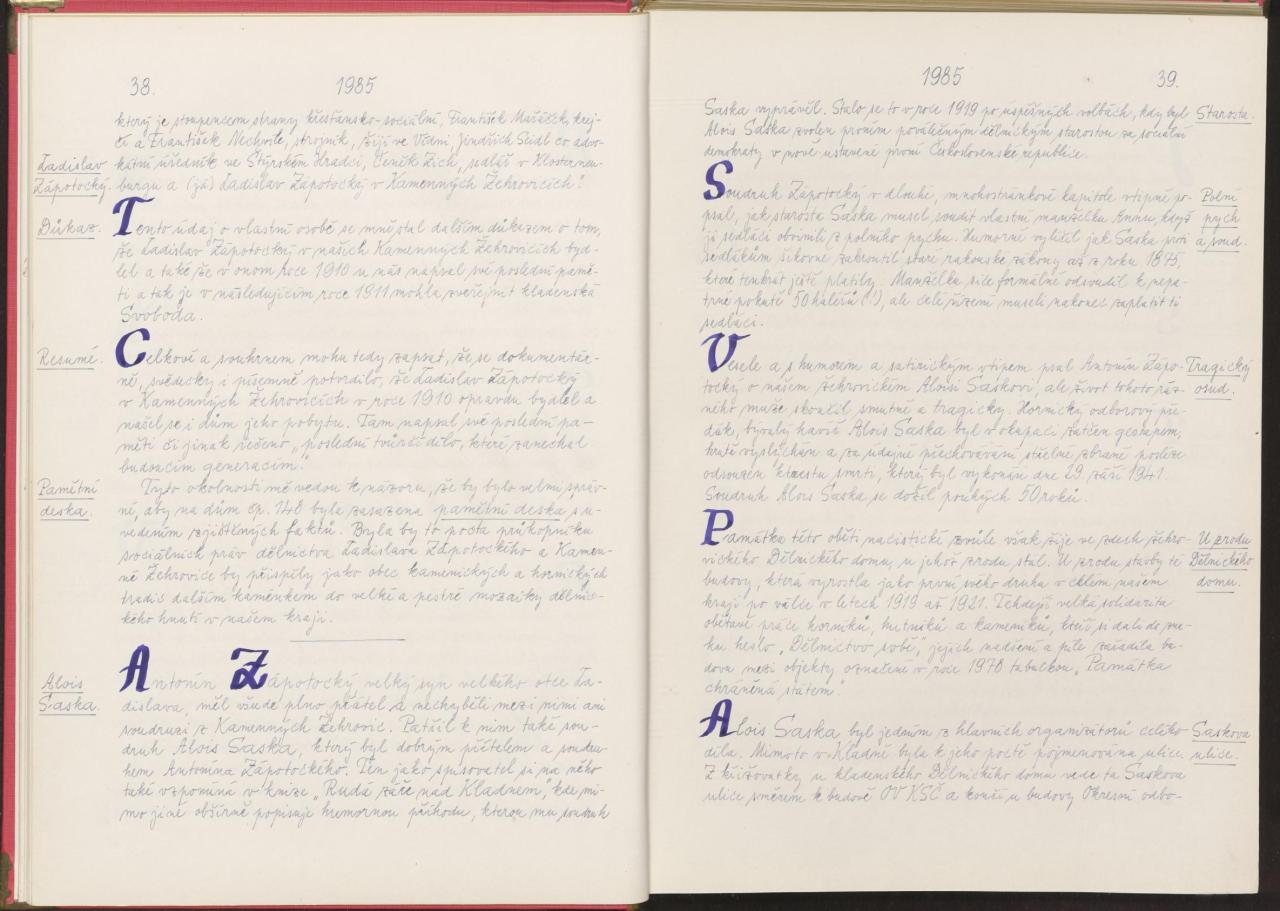 38.
1985
který je stoupencem strany křesťansko-sociální, František Mašáček, krej-
čí a František Nechvíle, strojník, žijí ve Vídni, Jindřich Seidl co advo-
kátní úředník ve Štýrském Hradci, Čeněk Zich, sedlář v Klosterneu-
burgu a (já) Ladislav Zápotocký v Kamenných Žehrovicích."
Ladislav
Zápotocký.
Tento údaj o vlastní osobě se mně stal dalším důkazem o tom,
Důkaz.
že Ladislav Zápotocký v našich Kamenných Žehrovicích byd-
lel a také že v onom roce 1910 u nás napsal své poslední pamě-
ti a tak je v následujícím roce 1911 mohla zveřejnit kladenská
Svoboda.
Celkově a souhrnem mohu tedy zapsat, že se dokumentár-
Resumé.
ně, svědecky i písemně potvrdilo, že Ladislav Zápotocký
v Kamenných Žehrovicích v roce 1910 opravdu bydlel a
našel se i dům jeho pobytu. Tam napsal své poslední pa-
měti či jinak řečeno „poslední tvůrčí dílo, které zanechal
budoucím generacím.
Tyto okolnosti mě vedou k názoru, že by bylo velmi správ-
Pamětní
deska.
né, aby na dům čp. 148 byla zasazena pamětní deska s u-
vedením zjištěných faktů. Byla by to pocta průkopníku
sociálních práv dělnictva Ladislava Zápotockého a Kamen-
né Žehrovice by přispěly jako obec kamenických a hornických
tradic dalším kaménkem do velké a pestré mozaiky dělnic-
kého hnutí v našem kraji.
Antonín Zápotocký, velký syn velkého otce La-
Alois
Saska.
dislava, měl všude plno přátel a nechyběli mezi nimi ani
soudruzi z Kamenných Žehrovic. Patřil k nim také sou-
druh Alois Saska, který byl dobrým přítelem a soudru-
hem Antonína Zápotockého. Ten jako spisovatel si na něho
také vzpomíná v knize „Rudá záře nad Kladnem", kde mi-
mo jiné obšírně popisuje humornou příhodu, kterou mu soudruh
1985
39.
Saska vyprávěl. Stalo se to v roce 1919 po úspěšných volbách, kdy byl
Starosta.
Alois Saska zvolen prvním poválečným dělnickým starostou za sociální
demokraty v nově ustavené první Československé republice.
Soudruh Zápotocký v dlouhé, mnohostránkové kapitole vtipně po-
Polní
pych
a soud.
psal, jak starosta Saska musel soudit vlastní manželku Annu, když
ji sedláci obvinili z polního pychu. Humorně vylíčil jak Saska proti
sedlákům šikovně zakroutil staré rakouské zákony až z roku 1875,
které tenkrát ještě platily. Manželku sice formálně odsoudil k nepa-
trné pokutě 50 haléřů (!), ale celé řízení museli nakonec zaplatit ti
sedláci.
Vesele a s humorem a satirickým vtipem psal Antonín Zápo-
Tragický
osud.
tocký o našem žehrovickém Aloisi Saskovi, ale život tohoto ráz-
ného muže skončil smutně a tragicky. Hornický odborový pře-
dák, bývalý havíř Alois Saska byl v okupaci zatčen gestapem,
krutě vyslýchán a za údajné přechovávání střelné zbraně posléze
odsouzen k trestu smrti, který byl vykonán dne 29. září 1941.
Soudruh Alois Saska se dožil pouhých 50 roků.
Památka této oběti nacistické zvůle však žije ve zdech žehro-
U zrodu
Dělnického
domu.
vického Dělnického domu, u jehož zrodu stál. U zrodu stavby té
budovy, která vyrostla jako první svého druhu v celém našem
kraji po válce v letech 1919 až 1921. Tehdejší velká solidarita
obětavé práce horníků, hutníků a kameníků, kteří si dali do vín-
ku heslo „Dělnictvo sobě, jejich nadšení a píle zařadila bu-
dovu mezi objekty označení v roce 1978 tabulkou „Památka
chráněná státem."
Alois Saska byl jedním z hlavních organizátorů celého
Saskova
ulice.
díla. Mimoto v Kladně byla k jeho poctě pojmenována ulice.
Z křižovatky u kladenského Dělnického domu vede ta Saskova
ulice směrem k budově OV KSČ a končí u budovy Okresní odbo-